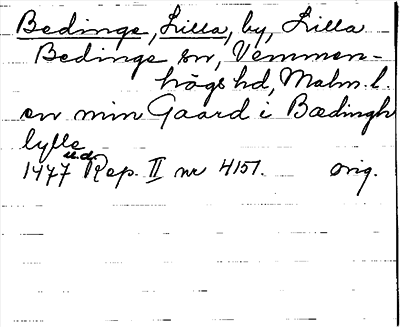 Bedinge, Lilla, by, Lilla
Bedinge sn, Vemmen-
högs hd, Malm. l.
en min Gaard i Bædingh
lylle
u.d.
1477 Rep. II nr 4157. orig.